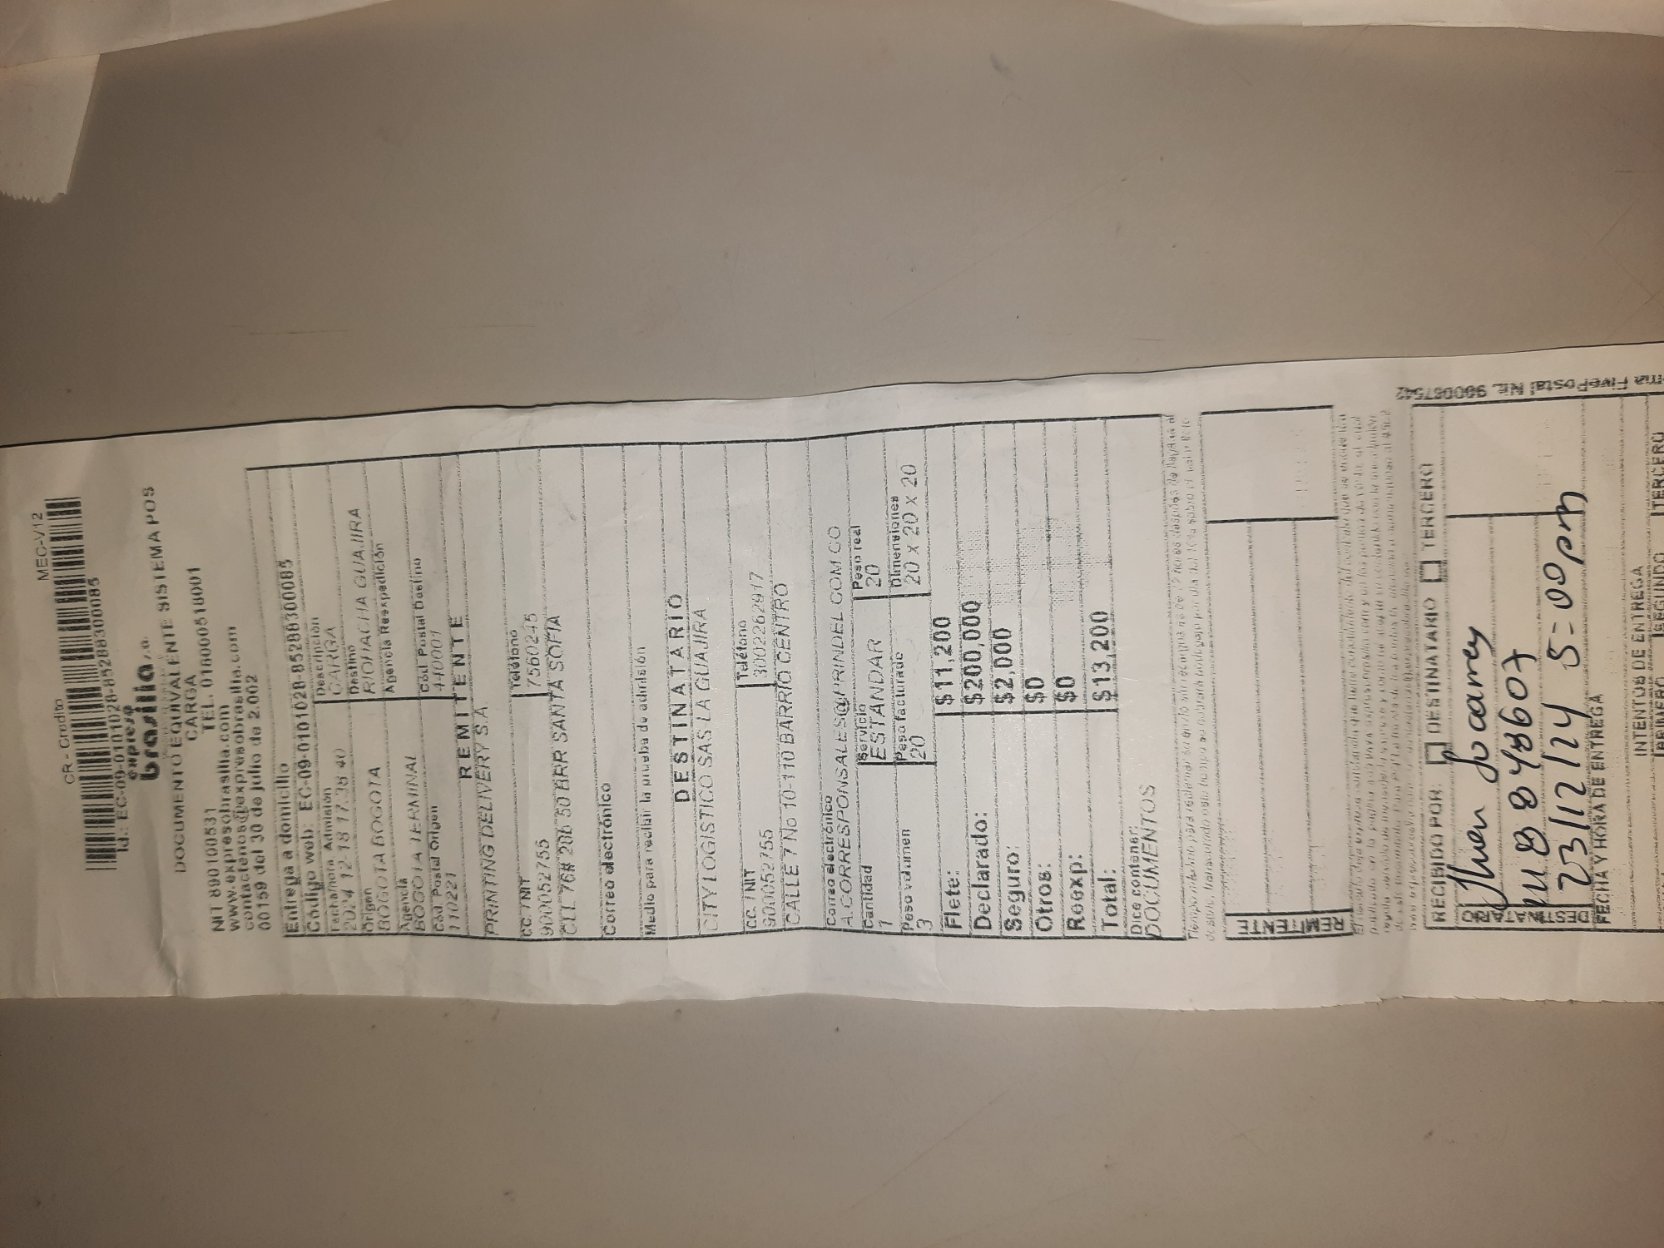 CR - Credito MEC-V12
Id.: EC-09-0101028-8528830000085
expreso
brasilia s.a.
DOCUMENTO EQUIVALENTE SISTEMA POS
CARGA
NIT 890100531 TEL. 018000518001
www.expresobrasilia.com
contactenos@expresobrasilia.com
00159 del 30 de julio de 2.002
Entrega a domicilio
Código web: EC-09-0101028-8528830000085
Fecha/hora Admisión Descripción
2024-12-18 17:38:40 CARGA
Origen Destino
BOGOTA BOGOTA RIOHACHA GUAJIRA
Agencia Agencia Reexpedición
BOGOTA TERMINAL
Cód. Postal Origen Cód. Postal Destino
110221 440001
REMITENTE
PRINTING DELIVERY S.A
CC. / NIT Teléfono
900052755 7560245
CLL 76# 20B 50 BRR SANTA SOFIA
Correo electrónico
Medio para recibir la prueba de admisión
DESTINATARIO
CITYLOGISTICO SAS LA GUAJIRA
CC. / NIT Teléfono
900052755 3002262977
CALLE 7 No 10-110 BARRIO CENTRO
Correo electrónico
A.CORRESPONSALES@PRINDEL.COM.CO
Cantidad Servicio Peso real
1 ESTANDAR 20
Peso volumen Peso facturado Dimensiones
3 20 20 x 20 x 20
Flete: $11,200
Declarado: $200,000
Seguro: $2,000
Otros: $0
Reexp: $0
Total: $13,200
Dice contener:
DOCUMENTOS
REMITENTE
RECIBIDO POR: DESTINATARIO TERCERO
DESTINATARIO
84848607
23/12/24 5=00pm
FECHA Y HORA DE ENTREGA
INTENTOS DE ENTREGA
PRIMERO SEGUNDO TERCERO
FivePostal Nit. 900087542